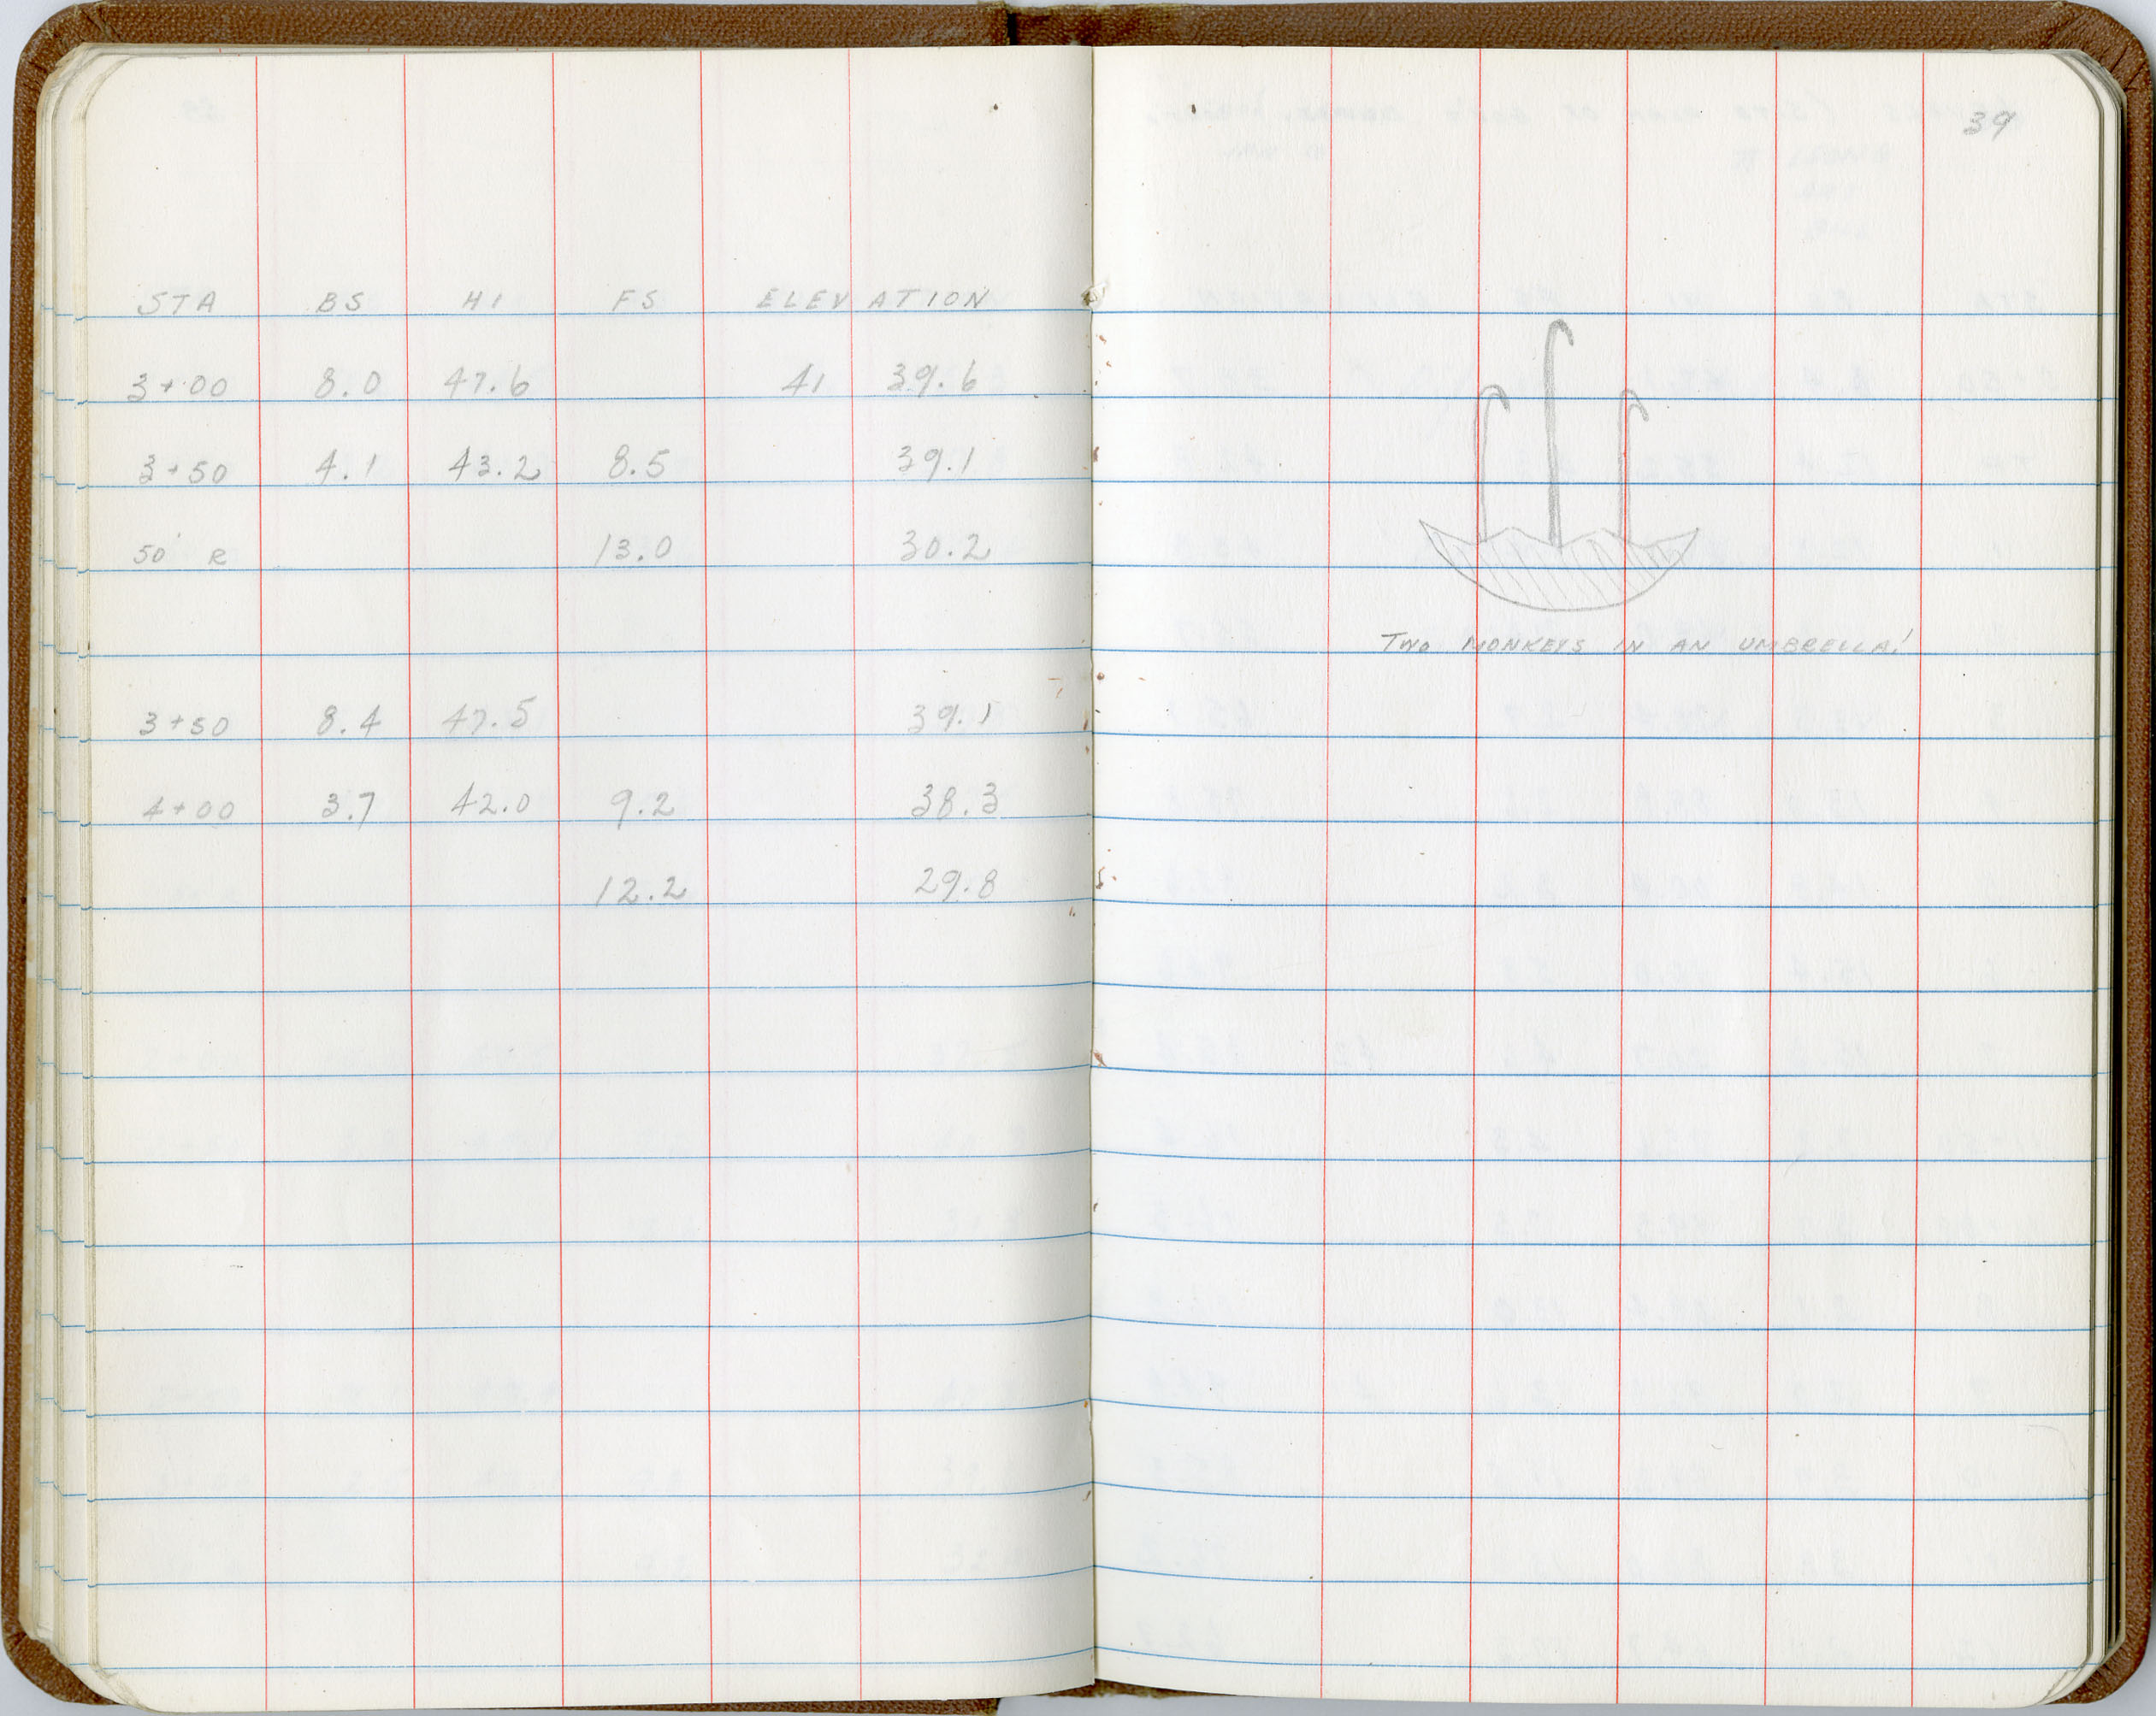 39
STA BS HI FS ELEVATION
3+00 8.0 47.6 41 39.6
3+50 4.1 43.2 8.5 39.1
50' R 13.0 30.2
3+50 8.4 47.5 39.1
4+00 3.7 42.0 9.2 38.3
12.2 29.8
TWO MONKEYS IN AN UMBRELLA!